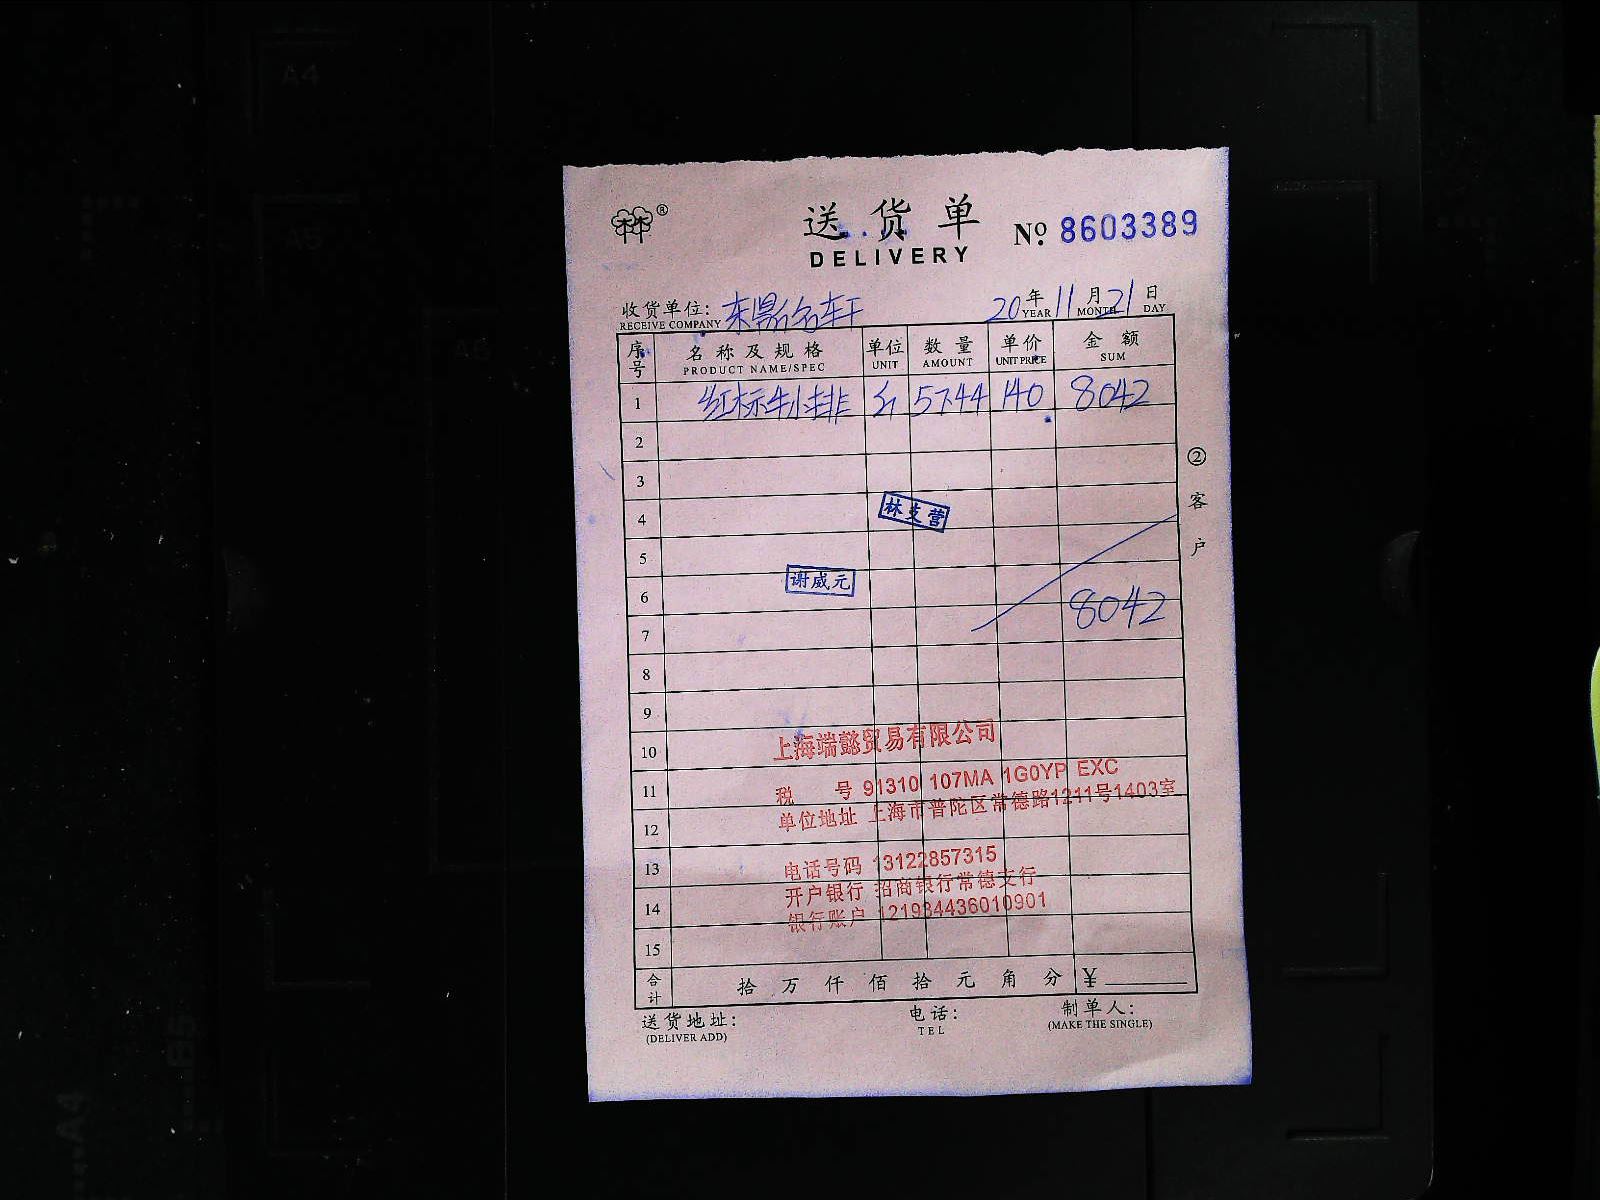 ®
送货单 No. 8603389
DELIVERY
收货单位: 东 名轩 20年11月21日
RECEIVE COMPANY YEAR MONTH DAY
序号 名称及规格 单位 数量 单价 金额
PRODUCT NAME/SPEC UNIT AMOUNT UNIT PRICE SUM
1 红标牛小排 57.44 140 8042
2
3
4 林支营
5
6 谢威元 8042
7
8
9
10 上海端懿贸易有限公司
11 税 号 91310 107MA 1G0YP EXC
12 单位地址 上海市普陀区常德路1211号1403室
13 电话号码 13122857315
开户银行 招商银行常德支行
14 银行账户 121934436010901
15
合计 拾万仟佰拾元角分 ¥
送货地址: 电话: 制单人:
(DELIVER ADD) TEL (MAKE THE SINGLE)
② 客户
A4
A5
A6
A4